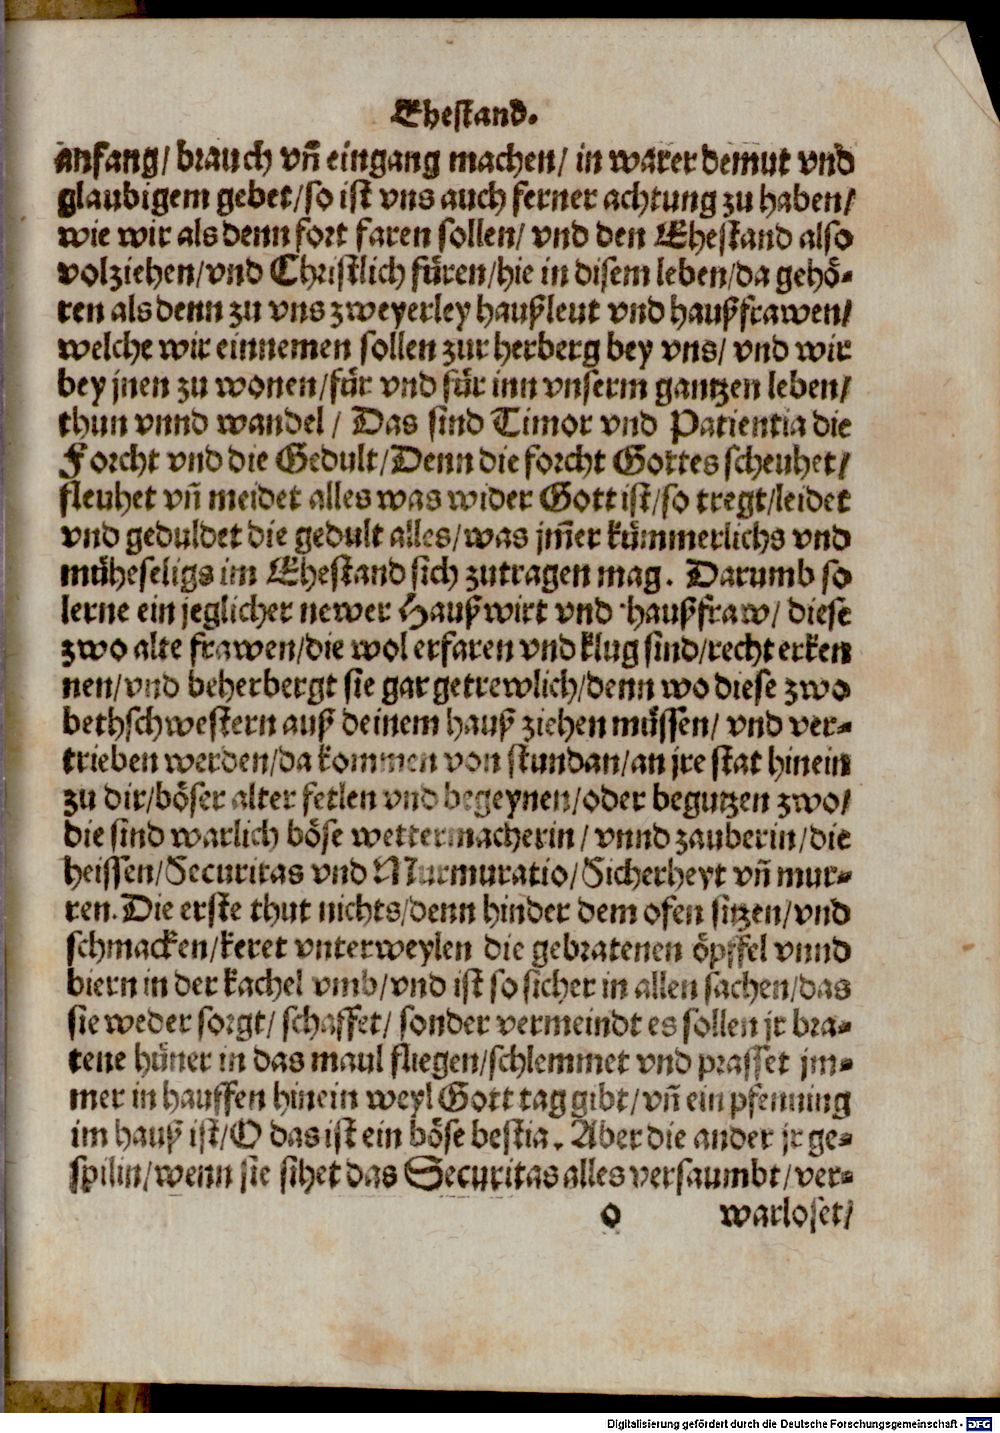 Ehestand.
anfang/ brauch vñ eingang machen/ in warer demut vnd
glaubigem gebet/so ist vns auch ferner achtung zu haben/
wie wir als denn fort faren sollen/ vnd den Ehestand also
volziehen/vnd Christlich füren/hie in disem leben/da gehö-
ren als denn zu vns zweyerley haußleut vnd haußfrawen/
welche wir einnemen sollen zur herberg bey vns/ vnd wir
bey jnen zu wonen/für vnd für inn vnserm gantzen leben/
thun vnnd wandel/ Das sind Timor vnd Patientia die
Forcht vnd die Gedult/Denn die forcht Gottes scheuhet/
fleuhet vñ meidet alles was wider Gott ist/so tregt/leidet
vnd geduldet die gedult alles/was jm̃er kümmerlichs vnd
müheseligs im Ehestand sich zutragen mag. Darumb so
lerne ein jeglicher newer Haußwirt vnd haußfraw/ diese
zwo alte frawen/die wol erfaren vnd klug sind/recht erken
nen/vnd beherbergt sie gar getrewlich/denn wo diese zwo
bethschwestern auß deinem hauß ziehen müssen/ vnd ver-
trieben werden/da kommen von stundan/an jre stat hinein
zu dir/böser alter fetlen vnd begeynen/oder begutzen zwo/
die sind warlich böse wettermacherin/ vnnd zauberin/die
heissen/Securitas vnd Murmuratio/Sicherheyt vñ mur-
ren. Die erste thut nichts/denn hinder dem ofen sitzen/vnd
schmacken/keret vnterweylen die gebratenen öpffel vnnd
biern in der kachel vmb/vnd ist so sicher in allen sachen/das
sie weder sorgt/ schaffet/ sonder vermeindt es sollen jr bra-
tene hüner in das maul fliegen/schlemmet vnd prasset jm-
mer in hauffen hinein weyl Gott tag gibt/vñ ein pfenning
im hauß ist/O das ist ein böse bestia. Aber die ander jr ge-
spilin/wenn sie sihet das Securitas alles versaumbt/ver-
o warloset/
Digitalisierung gefördert durch die Deutsche Forschungsgemeinschaft - DFG